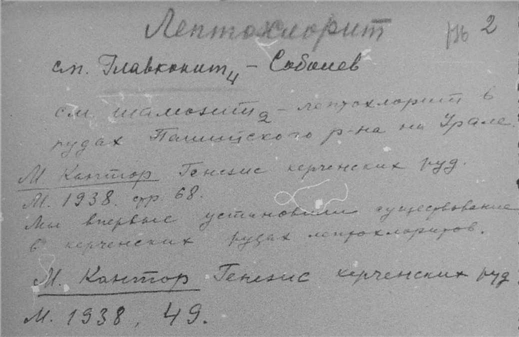 Лептохлорит
136 2
см. Главконит 4 - Соболев
см шамозит 2 - лептохлорит в
рудах Пашийского р-на на Урале.
М Кантор Генезис керченских руд.
М. 1938. стр 68.
Мы впервые установили существование
в керченских рудах лептохлоритов.
М. Кантор Генезис керченских руд
М. 1938, 49.